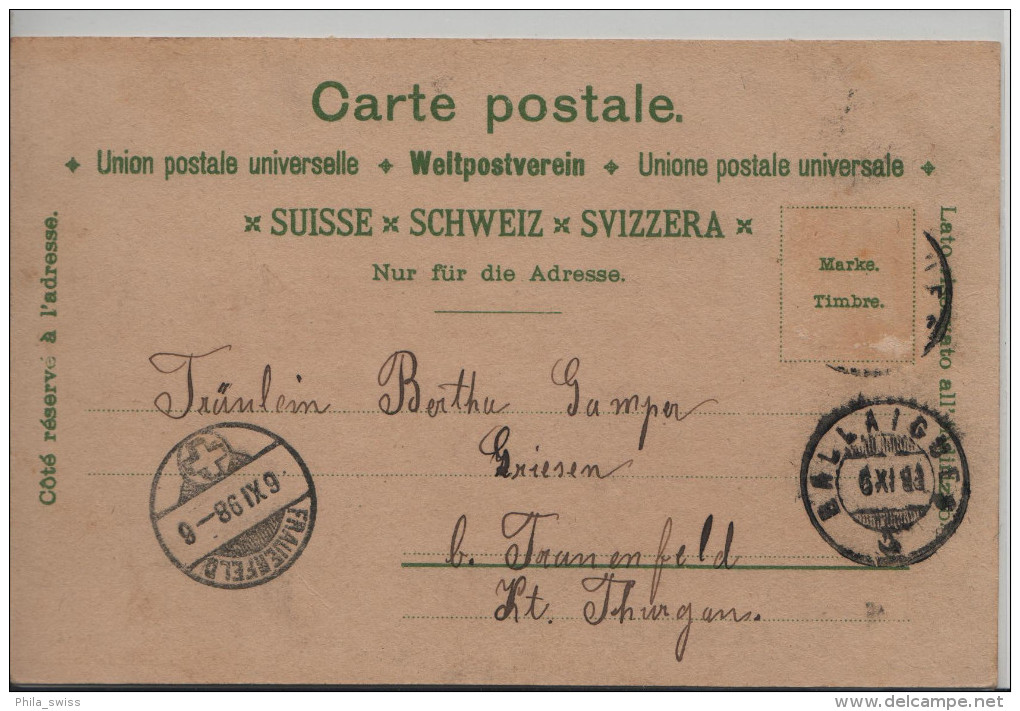 Carte postale.
Union postale universelle Weltpostverein Unione postale universale
SUISSE SCHWEIZ SVIZZERA
Nur für die Adresse.
Côté réservé à l'adresse.
Marke.
Timbre.
Fräulein Bertha Gamper
Griesen
b. Frauenfeld
Kt. Thurgau.
FRAUENFELD
6 XI 98 — 6
BALLAIGUES
6 XI 98
Lato all'
Phila_swiss
delcampe.net